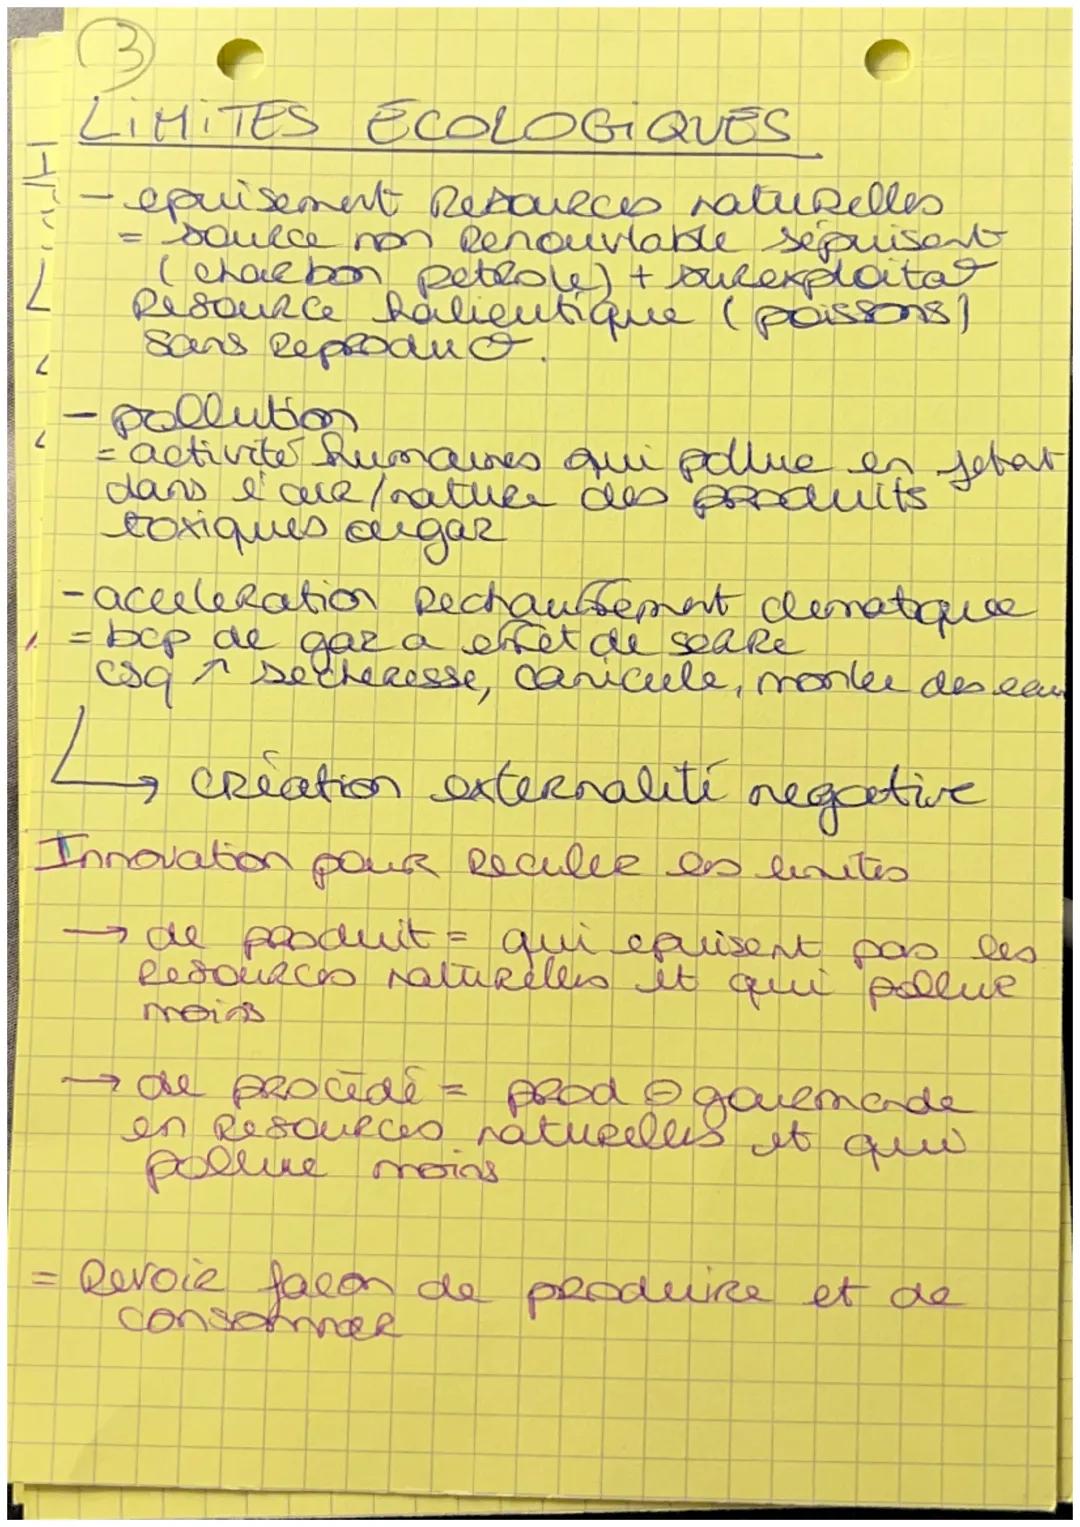 3
LiMiTES ÉCOLOGiQUES
- epuisement Resources naturelles
= source non Renouvlable s'épuisent
(charbon petrole) + surexploitat°
Resource halieutique (poissons)
sans Reproduct°.
- pollution
= activité humaines qui pollue en jetant
dans l'air/nature des produits
toxiques ou gaz
- acceleration Rechauffement climatique
= bcp de gaz a effet de serre
csq ↗ secheresse, canicule, montee des eaux
↳ création externalité negative
Innovation pour reculer les limites
→ de produit = qui epuisent pas les
Resources naturelles et qui pollue
moins
→ de procédé = prod ⊖ gourmande
en Resources naturelles et qui
pollue moins
= Revoir facon de produire et de
consommer